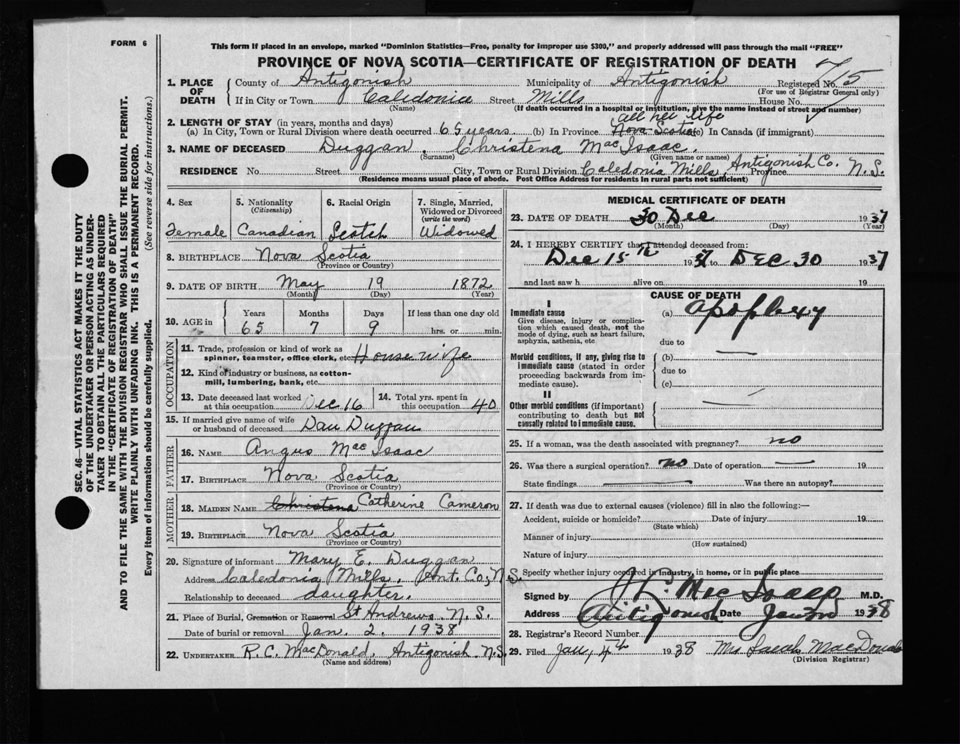 FORM 6
This form if placed in an envelope, marked "Dominion Statistics—Free, penalty for improper use $300," and properly addressed will pass through the mail "FREE"
PROVINCE OF NOVA SCOTIA—CERTIFICATE OF REGISTRATION OF DEATH
1. PLACE OF DEATH County of Antigonish Municipality of Antigonish Registered No. 75
(For use of Registrar General only)
If in City or Town Caledonia Street Mills House No.
(Name) (If death occurred in a hospital or institution, give the name instead of street and number)
2. LENGTH OF STAY (in years, months and days) all her life
(a) In City, Town or Rural Division where death occurred 65 years. (b) In Province Nova Scotia (c) In Canada (if immigrant)
3. NAME OF DECEASED Duggan, Christena MacIsaac.
(Surname) (Given name or names)
RESIDENCE No. Street City, Town or Rural Division Caledonia Mills, Antigonish Co. Province N.S.
(Residence means usual place of abode. Post Office Address for residents in rural parts not sufficient)
4. Sex 5. Nationality (Citizenship) 6. Racial Origin 7. Single, Married, Widowed or Divorced (write the word)
Female Canadian Scotch Widowed
8. BIRTHPLACE Nova Scotia
(Province or Country)
9. DATE OF BIRTH May 19 1872
(Month) (Day) (Year)
10. AGE in Years Months Days If less than one day old
65 7 9 hrs. or min.
OCCUPATION
11. Trade, profession or kind of work as spinner, teamster, office clerk, etc. Housewife
12. Kind of industry or business, as cotton-mill, lumbering, bank, etc.
13. Date deceased last worked at this occupation Dec 16 14. Total yrs. spent in this occupation 40
15. If married give name of wife or husband of deceased Dan Duggan
FATHER
16. NAME Angus MacIsaac
17. BIRTHPLACE Nova Scotia
(Province or Country)
MOTHER
18. MAIDEN NAME Christena Catherine Cameron
19. BIRTHPLACE Nova Scotia
(Province or Country)
20. Signature of informant Mary E. Duggan
Address Caledonia Mills, Ant. Co., N.S.
Relationship to deceased daughter.
21. Place of Burial, Cremation or Removal St Andrews, N.S.
Date of burial or removal Jan. 2. 1938
22. UNDERTAKER R.C. MacDonald, Antigonish N.S.
(Name and address)
MEDICAL CERTIFICATE OF DEATH
23. DATE OF DEATH 30 Dec 1937
(Month) (Day) (Year)
24. I HEREBY CERTIFY that I attended deceased from:
Dec 15th 1937 to DEC 30 1937
and last saw h alive on 19
CAUSE OF DEATH
I
Immediate cause
Give disease, injury or complication which caused death, not the mode of dying, such as heart failure, asphyxia, asthenia, etc
(a) apoplexy
due to
Morbid conditions, if any, giving rise to immediate cause (stated in order proceeding backwards from immediate cause).
(b)
due to
(c)
II
Other morbid conditions (if important) contributing to death but not causally related to immediate cause.
25. If a woman, was the death associated with pregnancy? no
26. Was there a surgical operation? no Date of operation — 19
State findings Was there an autopsy?
27. If death was due to external causes (violence) fill in also the following:—
Accident, suicide or homicide? Date of injury 19
(State which)
Manner of injury
(How sustained)
Nature of injury
Specify whether injury occurred in industry, in home, or in public place
Signed by MacIsaac M.D.
Address Antigonish Date Jan 1938
28. Registrar's Record Number
29. Filed Jan, 4th 1938 Mrs Sarah MacDonald
(Division Registrar)
SEC. 46—VITAL STATISTICS ACT MAKES IT THE DUTY
OF THE UNDERTAKER OR PERSON ACTING AS UNDER-
TAKER TO OBTAIN ALL THE PARTICULARS REQUIRED
IN THE "CERTIFICATE OF REGISTRATION OF DEATH"
AND TO FILE THE SAME WITH THE DIVISION REGISTRAR WHO SHALL ISSUE THE BURIAL PERMIT.
WRITE PLAINLY WITH UNFADING INK. THIS IS A PERMANENT RECORD.
Every item of information should be carefully supplied. (See reverse side for instructions.)